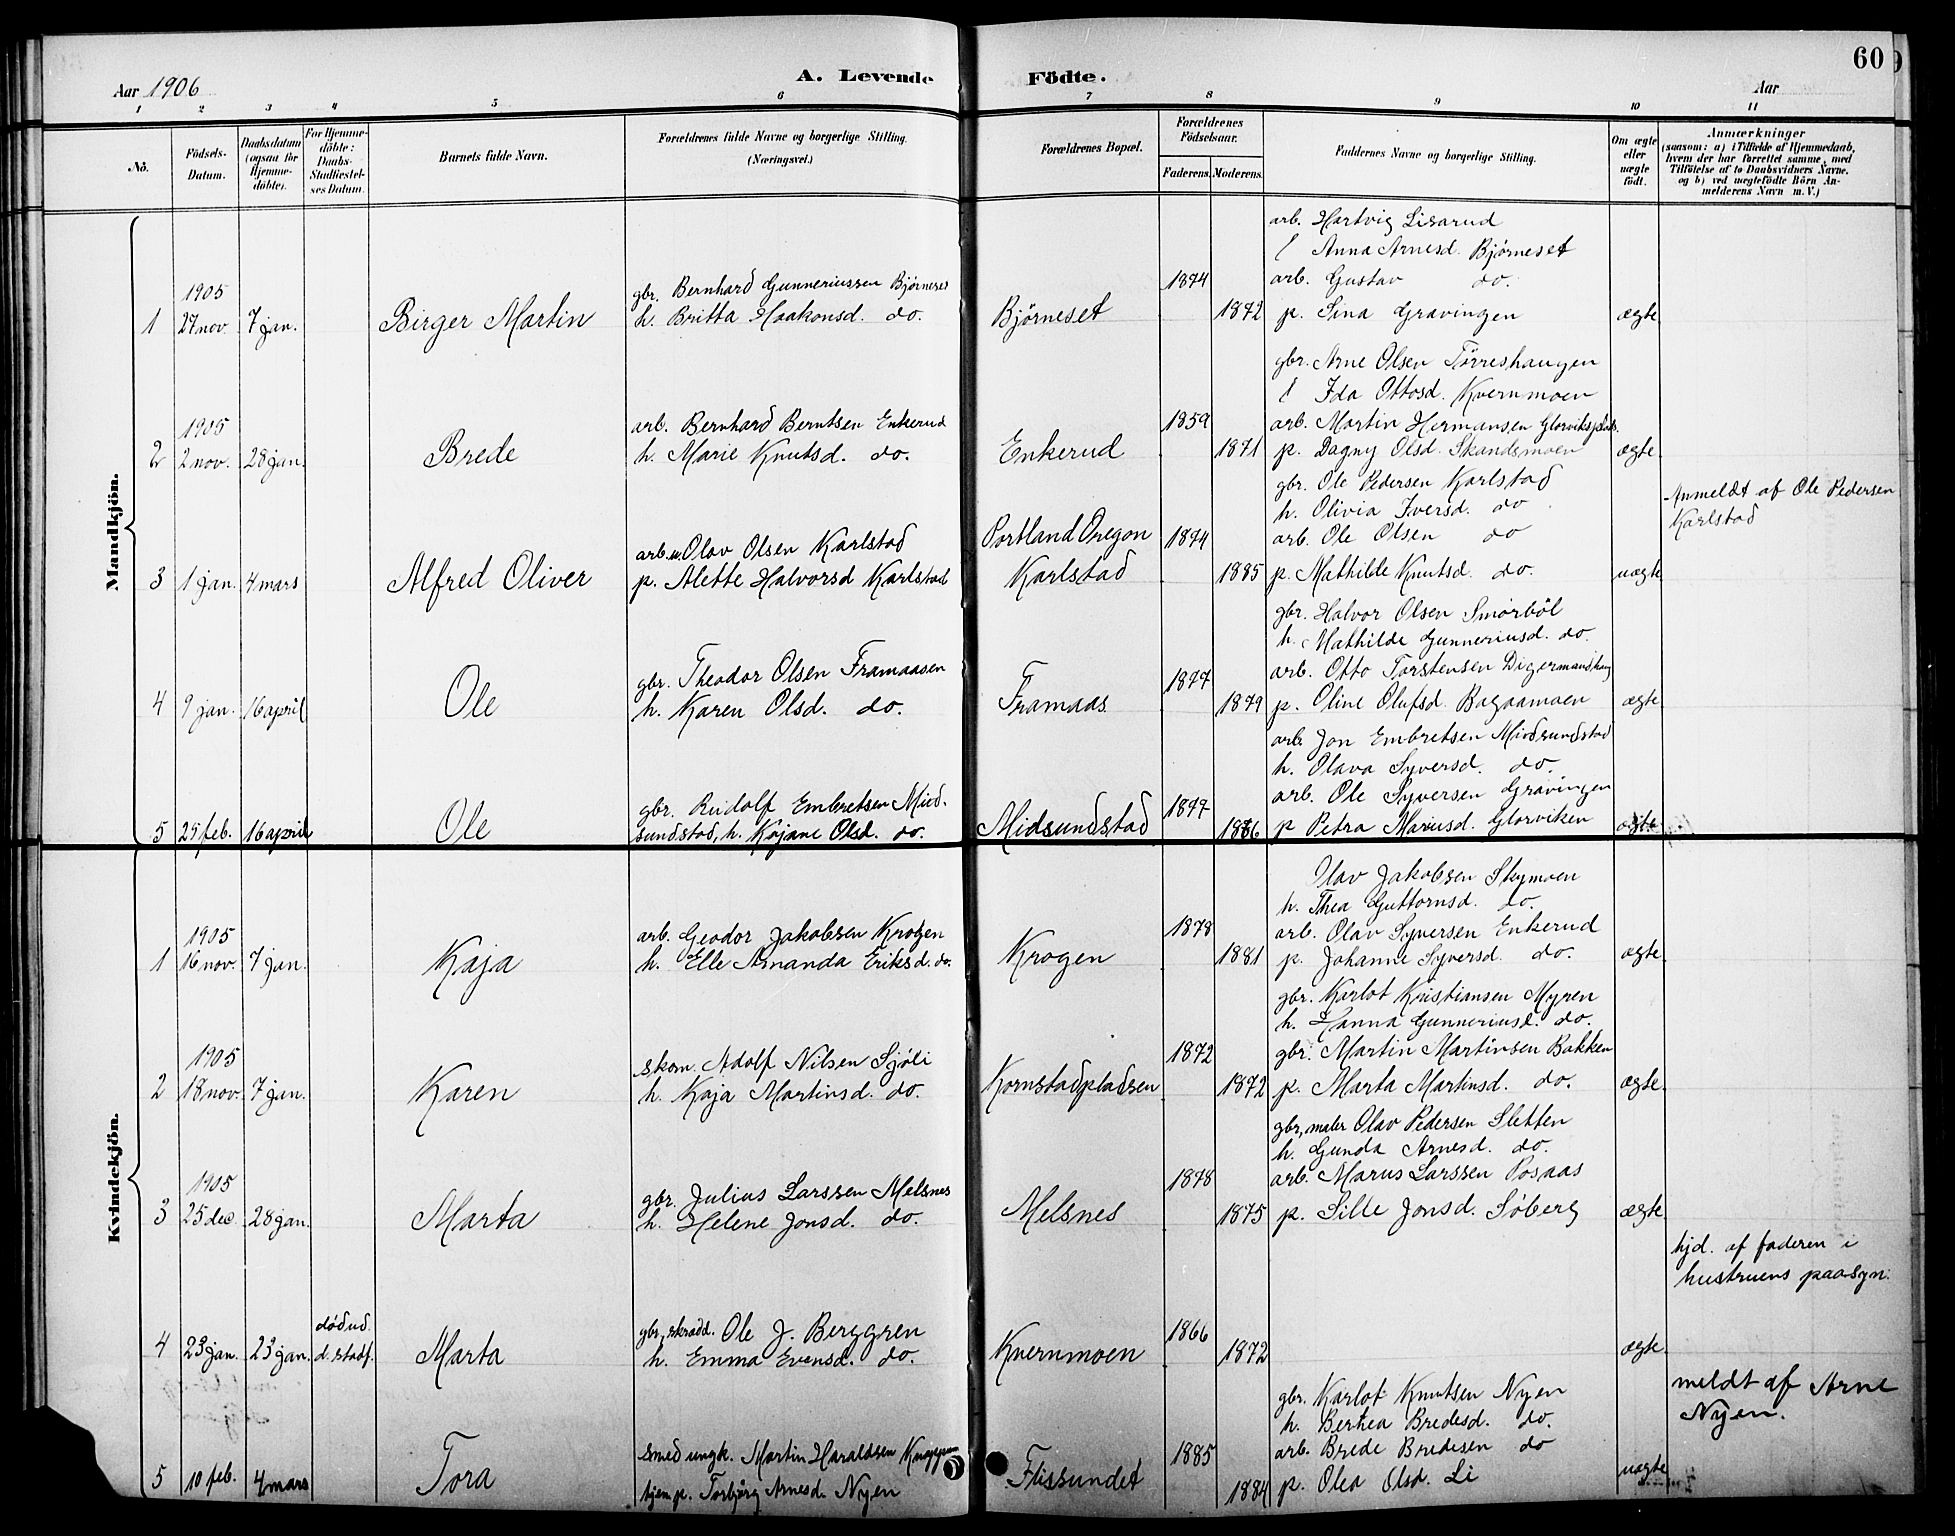 60
Aar 1906
A. Levende Fødte.
Aar
1 2 3 4 5 6 7 8 9 10 11
No.
Fødsels-Datum.
Daabsdatum (ogsaa for Hjemme-døbte).
For Hjemme-døbte: Daabs-Stadfæstel-ses Datum.
Barnets fulde Navn.
Forældrenes fulde Navne og borgerlige Stilling. (Næringsvei.)
Forældrenes Bopæl.
Forældrenes Fødselsaar.
Faderens. Moderens.
Faddernes Navne og borgerlige Stilling.
Om ægte eller uægte født.
Anmærkninger
(saasom: a) i Tilfælde af Hjemmedaab, hvem der har forrettet samme, med Tilføielse af to Daabsvidners Navne. og b) ved uægtefødte Børn An-melderens Navn m. V.)
Mandkjøn.
arb. Hartvig Lisarud
Anna Arnesd. Bjørneset
1905 gbr. Bernhard Gunneriussen Bjørneset 1874 arb. Gustav do.
1 27 nov. 7 jan. Birger Martin h. Britta Haakonsd. do. Bjørneset 1872 p. Sina Gravingen ægte
gbr. Arne Olsen Tørreshaugen
Ida Ottosd. Kvernmoen
1905 arb. Bernhard Berntsen Enkerud 1859 arb. Martin Hermansen
2 2 nov. 28 jan. Brede h. Marie Knutsd. do. Enkerud 1871 p. Dagny Olsd. Skandsmoen ægte
gbr. Ole Pedersen Karlstad
h. Olivia Iversd. do
Anmeldt af Ole Pedersen Karlstad
Olav Olsen Karlstad Portland Oregon 1874 arb. Ole Olsen do
3 1 jan. 4 mars Alfred Oliver p. Alette Halvorsd Karlstad Karlstad 1885 p. Mathilde Knutsd. do. uægte
gbr. Halvor Olsen Smørbøl
h. Mathilde Gunneriusd. do.
gbr. Theodor Olsen Framaasen 1877 arb. Otto Torstensen
4 9 jan. 16 april Ole h. Karen Olsd. do. Framaas 1879 p. Oline Olufsd. Bagaamoen ægte
arb. Jon Embretsen Midsundstad
h. Olava Syversd. do.
gbr. Rudolf Embretsen Mid- 1877 arb. Ole Syversen Gravingen
5 25 feb. 16 april Ole sundstad, h. Kajane Olsd. do. Midsundstad p Petra Mariusd. Glorviken ægte
Kvindekjøn.
Olav Jakobsen Skymoen
h. Thea Guttormsd. do.
1905 arb. Geodor Jakobsen Krogen 1878 arb. Olav Syversen Enkerud
1 16 nov. 7 jan. Kaja h. Elle Amanda Eriksd. do. Krogen 1881 p. Johanne Syversd. do. ægte
gbr. Karlot Kristiansen Myren
h. Hanna Gunneriusd. do.
1905 skom. Adolf Nilsen Sjøli 1872 gbr. Martin Martinsen Bakken
2 18 nov. 7 jan. Karen h. Kaja Martinsd. do. Kornstadpladsen 1872 p. Marta Martinsd. do. ægte
gbr, maler Olav Pedersen Sletten
h. Gunda Arnesd. do.
1905 gbr. Julius Larssen Melsnes 1878 arb. Marus Larssen Posaas
3 25 dec. 28 jan. Marta h. Helene Jonsd. do. Melsnes 1875 p. Sille Jonsd. Søberg ægte
hjd. af faderen i hustruens paasyn.
død ud. gbr, skrædd. Ole J. Berggren 1866
4 23 jan. 23 jan. d. stadf. Marta h. Emma Evensd. do. Kvernmoen 1872 ægte
gbr. Karlot Knutsen Nyen meldt af Arne
h. Berthea Bredesd. do. Nyen.
smed ungk. Martin Haraldsen 1885 arb. Brede Bredesen do
5 10 feb. 4 mars Tora tjen. p. Torbjørg Arnesd. Nyen Flissundet 1884 p. Olea Olsd. Li uægte